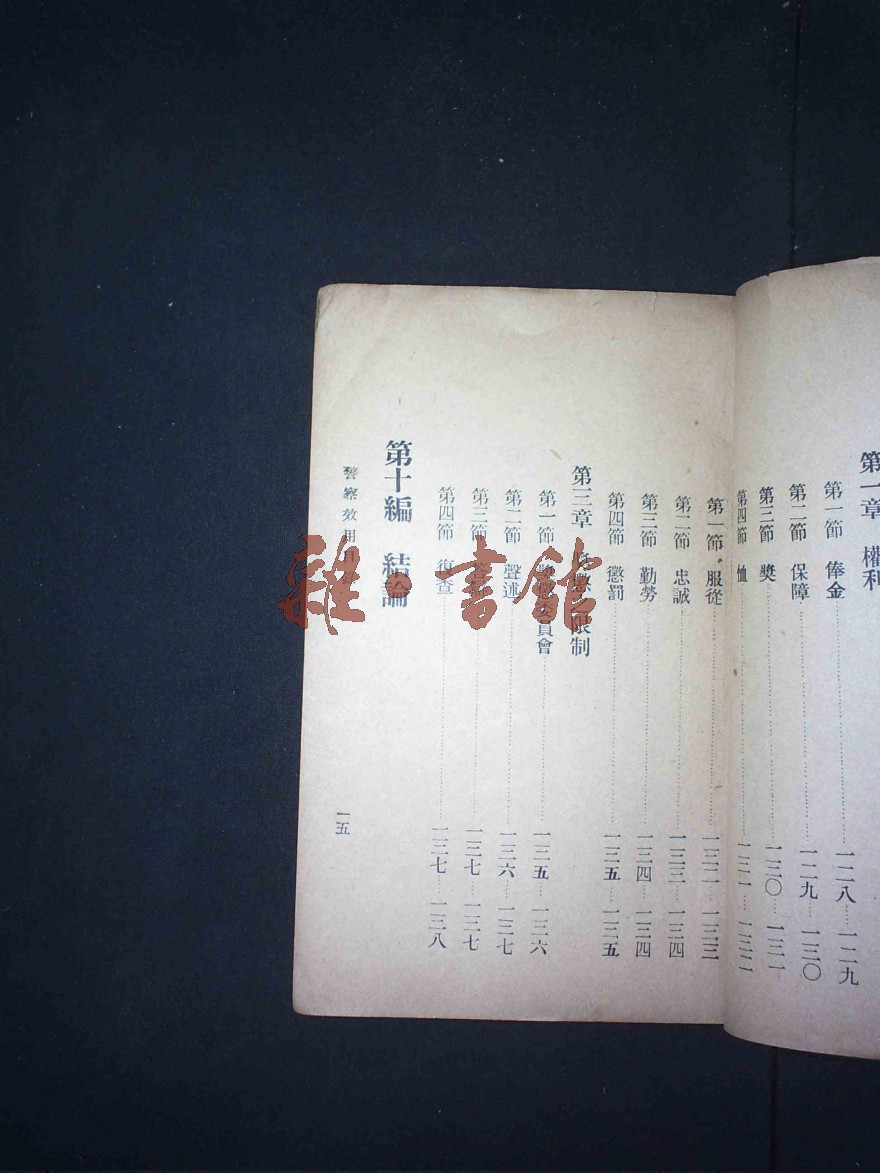 第一章　權利
第一節　俸金……一二八……一二九
第二節　保障……一二九……一三〇
第三節　獎……一三〇……一三一
第四節　恤……一三一……一三二
第一節　服從……一三二……一三三
第二節　忠誠……一三三……一三四
第三節　勤勞……一三四……一三四
第四節　懲罰……一三五……一三五
第三章　懲之限制
第一節　委員會……一三五……一三六
第二節　聲述……一三六……一三七
第三節　……一三七……一三七
第四節　復查……一三七……一三八
第十編　結論
警察效用目
一五
雜·書館